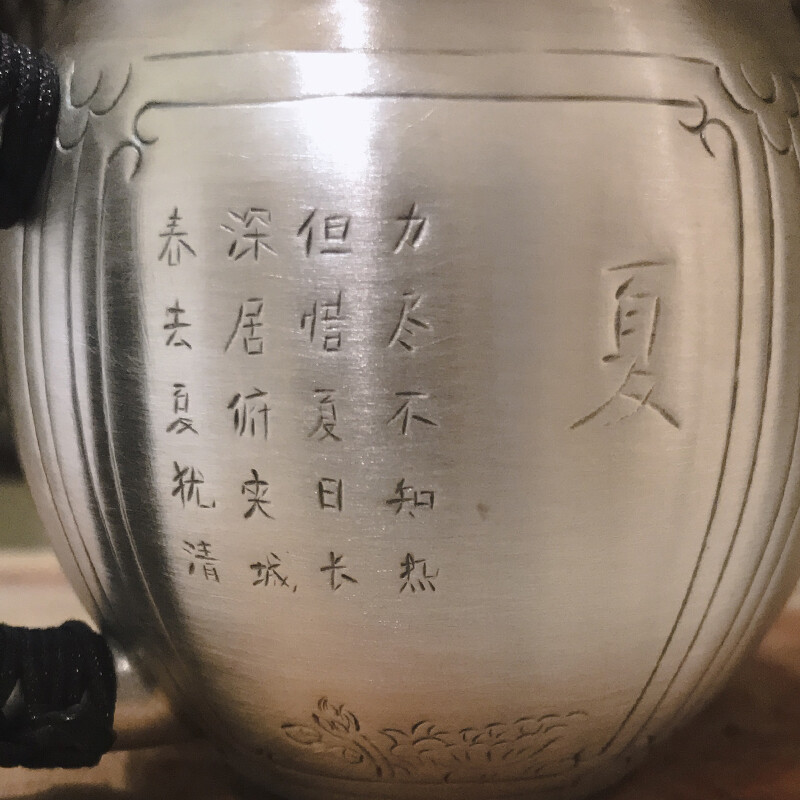 夏
力尽不知热
但惜夏日长
深居俯夹城,
春去夏犹清